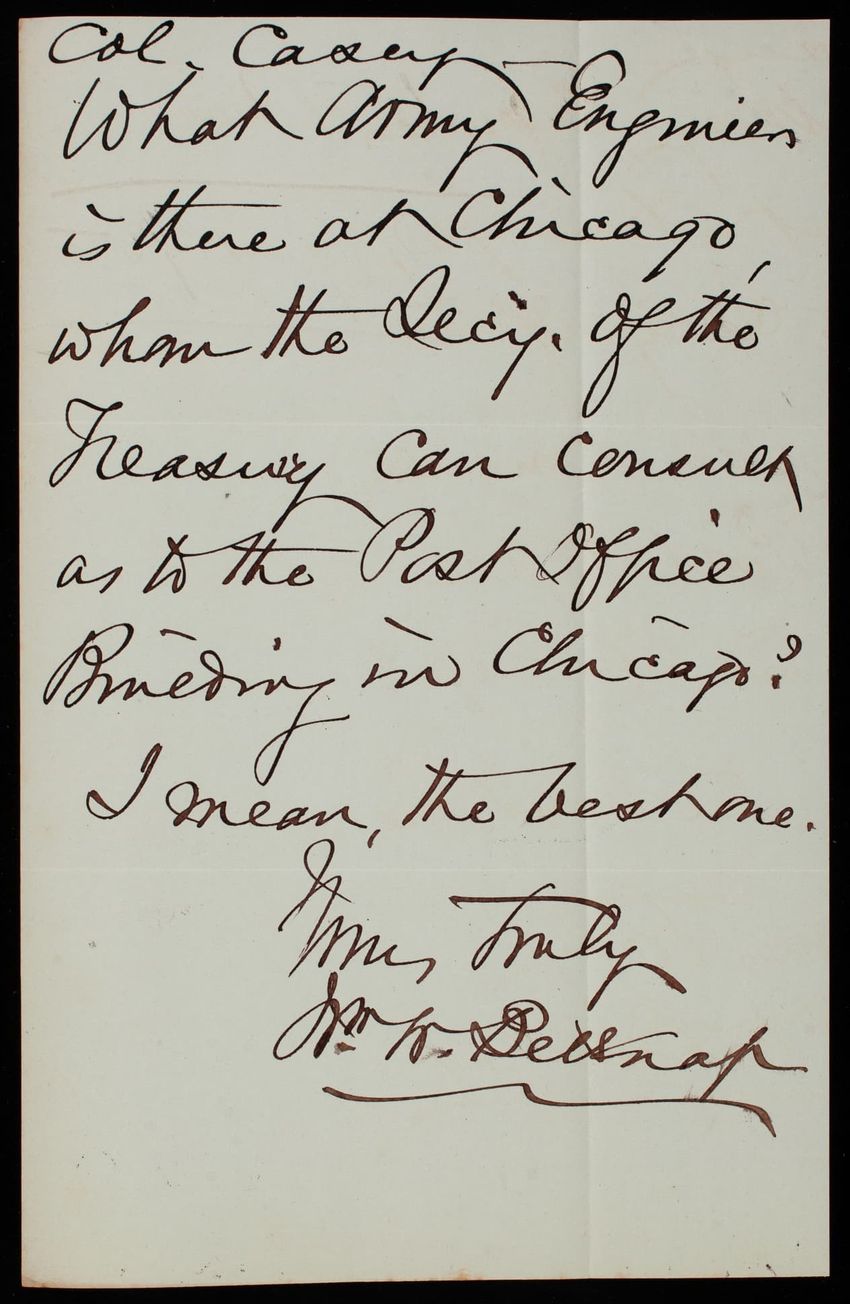 Col. Casey –
What Army Engineer
is there at Chicago,
whom the Secy. of the
Treasury can consult
as to the Post Office
Building in Chicago?
I mean, the best one.
Yours truly
Wm W. Belknap